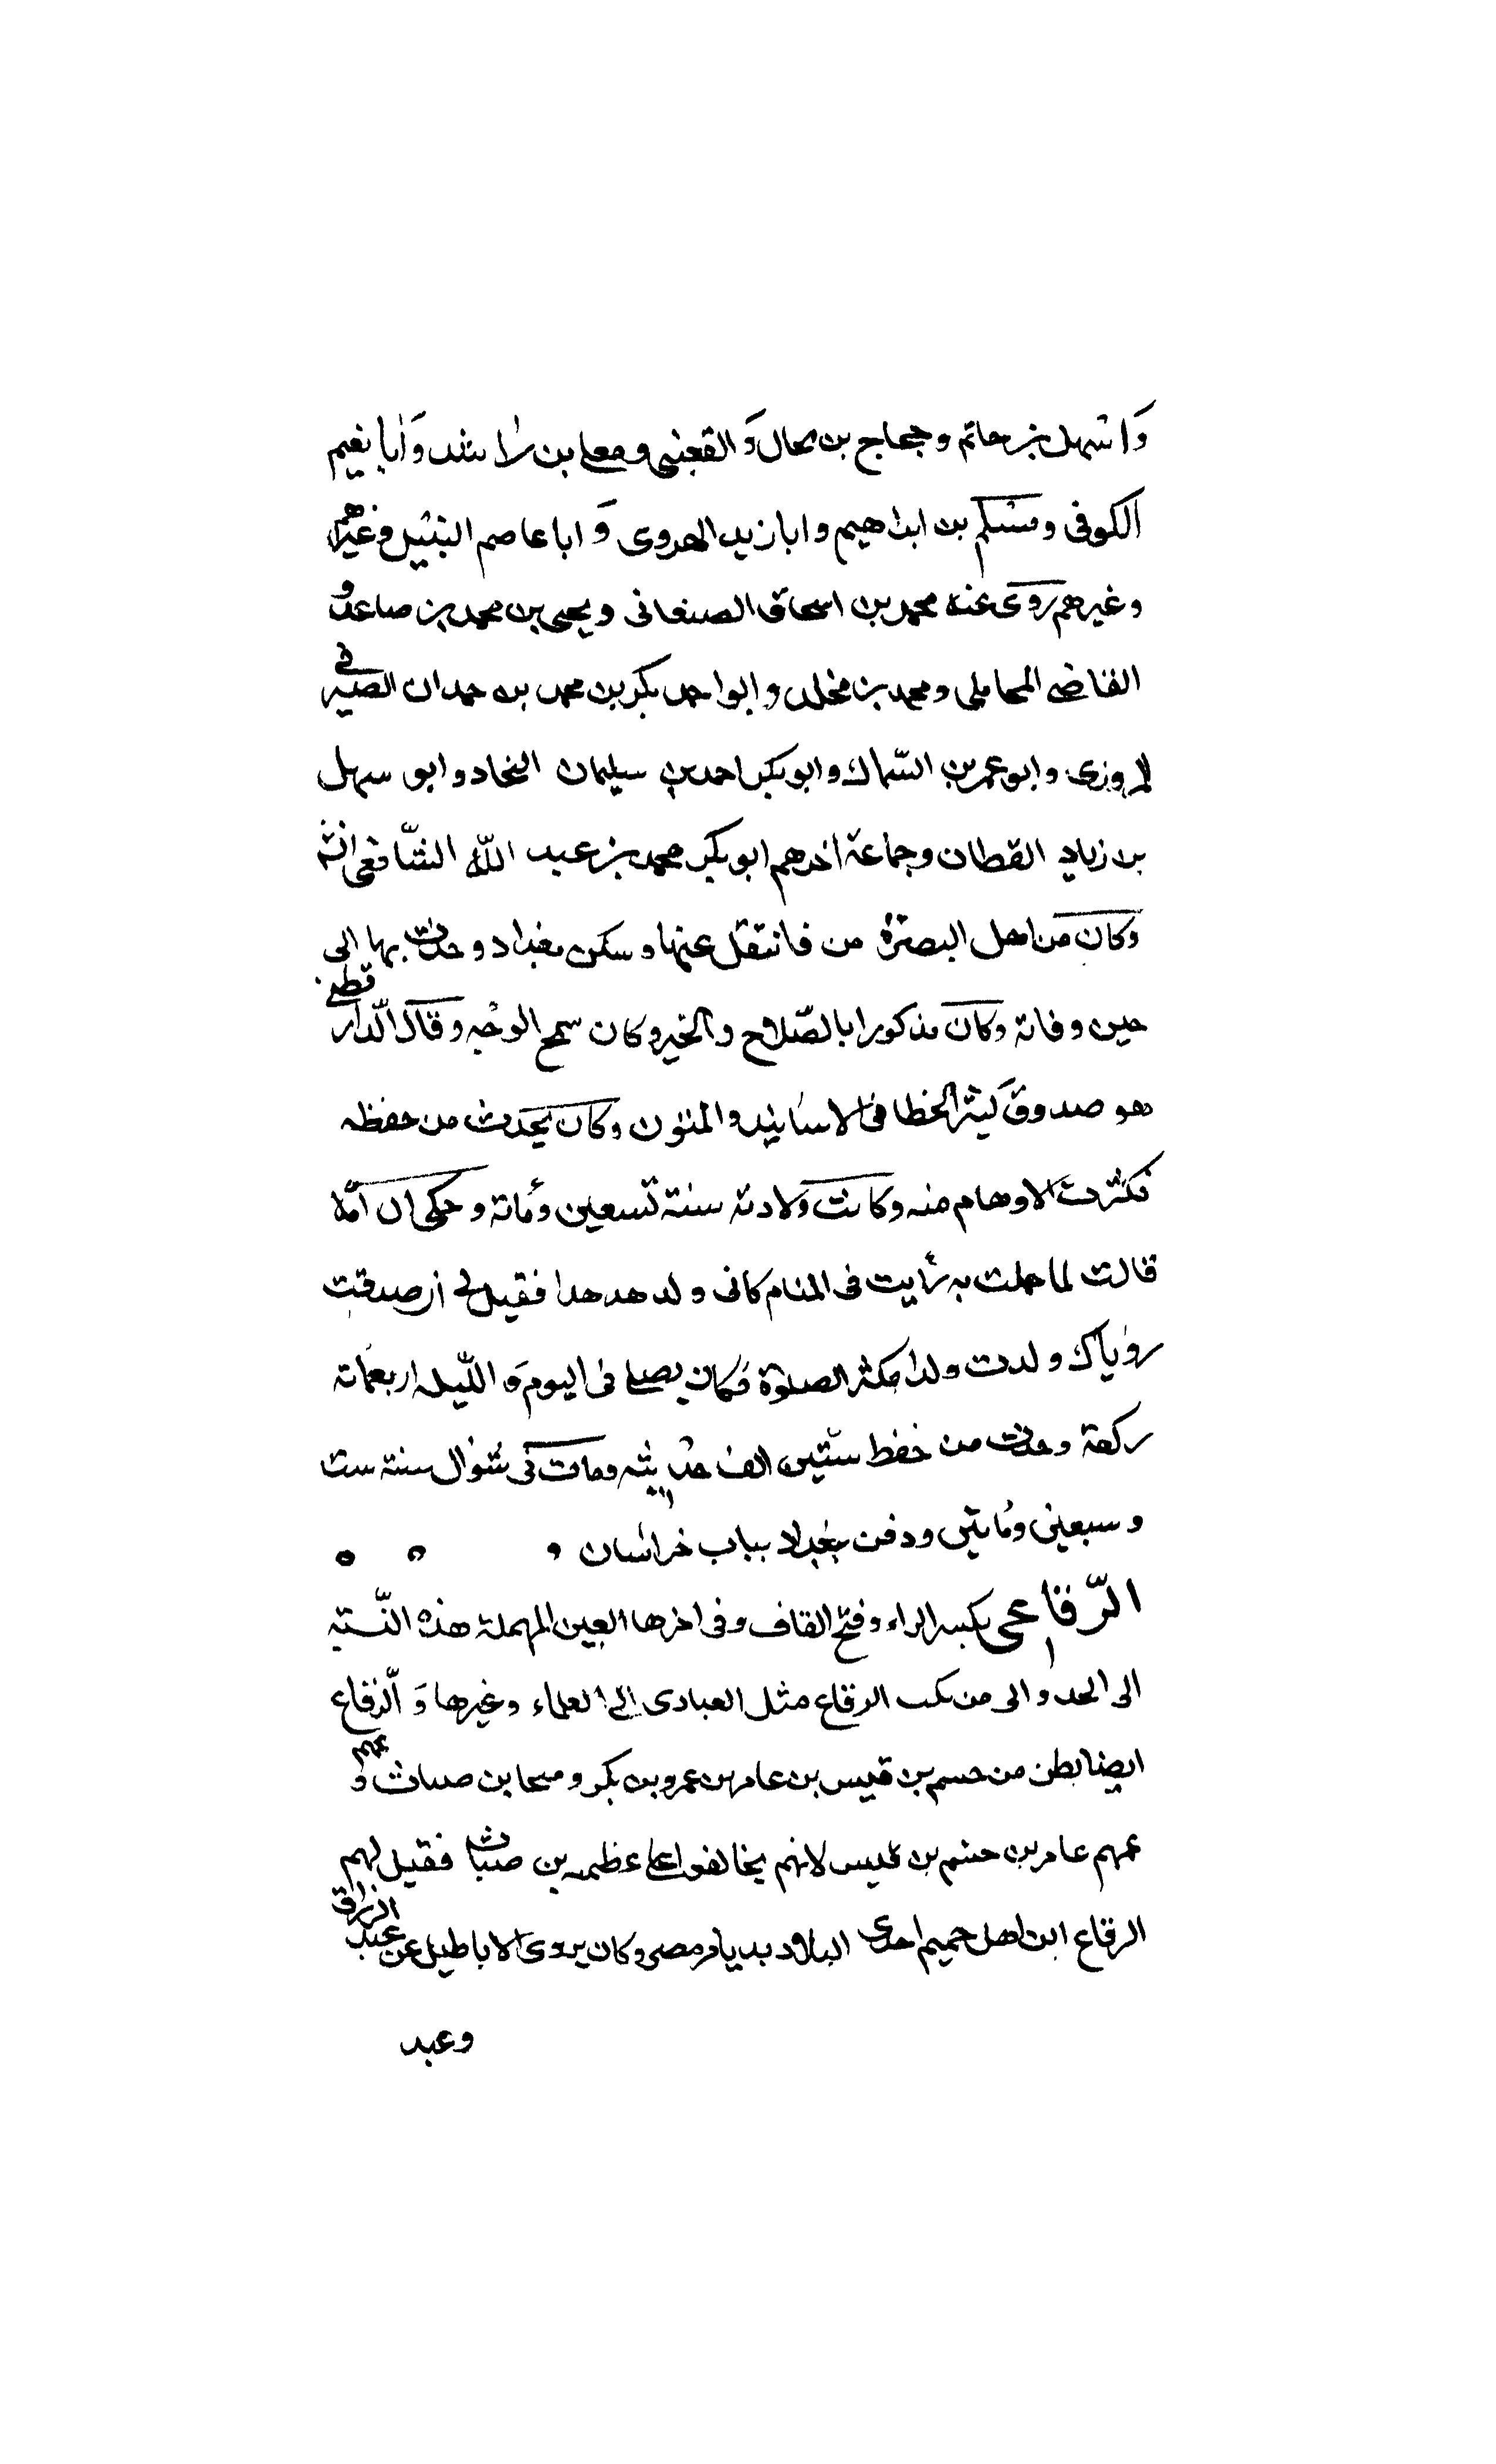 وَاشهل بن حاتم وحجاج بن محال وَالقعنبى ومعلى بن راشد وَابا نعيم
الكوفى ومسلم بن ابراهيم وابا زيد الهروى وَ ابا عاصم النبيل وغيرهم
وغيرهم روى عنه محمد بن اسحاق الصنعانى ويحيى بن محمد بن صاعد و
القاضى المحاملى ومحمد بن مخلد وابو احمد بكر بن محمد بن حمدان الصيرفى
المروزى وابو عمر بن السّماك وابو بكر احمد بن سليمان النجاد وابو سهل
بن زياد القطان وجماعة اخرهم ابو بكر محمد بن عبد اللّه الشّافعى
وكان من اهل البصرة من فانتقل عنها وسكن بغداد وحدث بها الى
حين وفاته وكان مذكورا بالصّلاح والخير وكان سمح الوجه وقال الّدارقطنى
هو صدوق كثير الخطا فى الاسانيد والمتون وكان يحدث من حفظه
فكثرت الاوهام منه وكانت ولادته سنة تسعين ومائة وحكى ان امّه
قالت لما حملت به رأيت فى المنام كانى ولد هدهدا فقيل لى ان صدقت
روياك ولدت ولدا يكثر الصلوة فكان يصلى فى اليوم وَ اللّيله اربعمائة
ركعة وحدث من حفظ ستّين الف حديثه ومات فى شوال سنة ست
وسبعين ومائتين ودفن ببغداد بباب خراسان
الرّقاعى بكسر الراء وفتح القاف وفى اخرها العين المهملة هذه النّسبة
الى الجد والى من نكب الرقاع مثل العبادى الى العلماء وغيرها وَ الّرقاع
ايضا بطن من حسم بن قيس بن عامر بن عمرو بن بكر و بن صباث و عمهم
عمهم عامر بن حشم بن قيس لانهم يخالفوا على عظيمه بن صباث فقيل لهم
الرقاع ابن اهل حميم احدى البلاد بديار مصر وكان يروى الاباطيل عن عبد الرزاق
وعبد